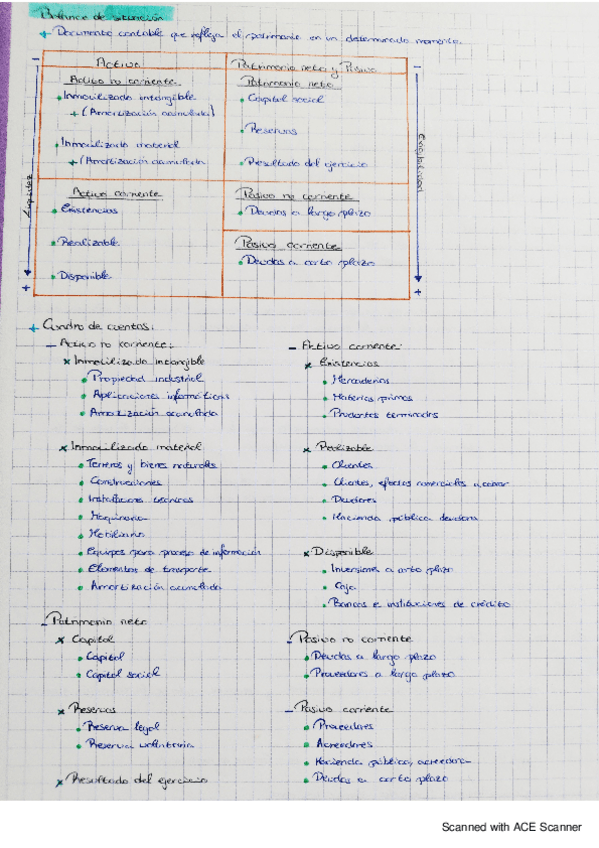 Balance de situación
Documento contable que refleja el patrimonio en un determinado momento.
Activo
Patrimonio neto y Pasivo
Activo no corriente
Inmovilizado intangible
(Amortización acumulada)
Inmovilizado material
(Amortización acumulada
Activo corriente
Existencias
Realizable
Disponible
Patrimonio neto
Capital social
Reservas
Resultado del ejercicio
Pasivo no corriente
Deudas a largo plazo
Pasivo corriente
Deudas a corto plazo
- Liquidez +
- Exigibilidad +
+ Cuadro de cuentas:
- Activo no corriente:
x Inmovilizado intangible
Propiedad industrial
Aplicaciones informáticas
Amortización acumulada
x Inmovilizado material
Terrenos y bienes naturales
Construcciones
Instalaciones técnicas
Maquinaria
Mobiliario
Equipos para proceso de información
Elementos de transporte
Amortización acumulada
- Patrimonio neto
x Capital
Capital
Capital social
x Reservas
Reserva legal
Reserva voluntaria
x Resultado del ejercicio
- Activo corriente:
x Existencias
Mercaderías
Materias primas
Productos terminados
x Realizable
Clientes
Clientes, efectos comerciales a cobrar
Deudores
Hacienda pública deudora
x Disponible
Inversiones a corto plazo
Caja
Bancos e instituciones de crédito
- Pasivo no corriente
Deudas a largo plazo
Proveedores a largo plazo
- Pasivo corriente
Proveedores
Acreedores
Hacienda pública, acreedora
Deudas a corto plazo
Scanned with ACE Scanner